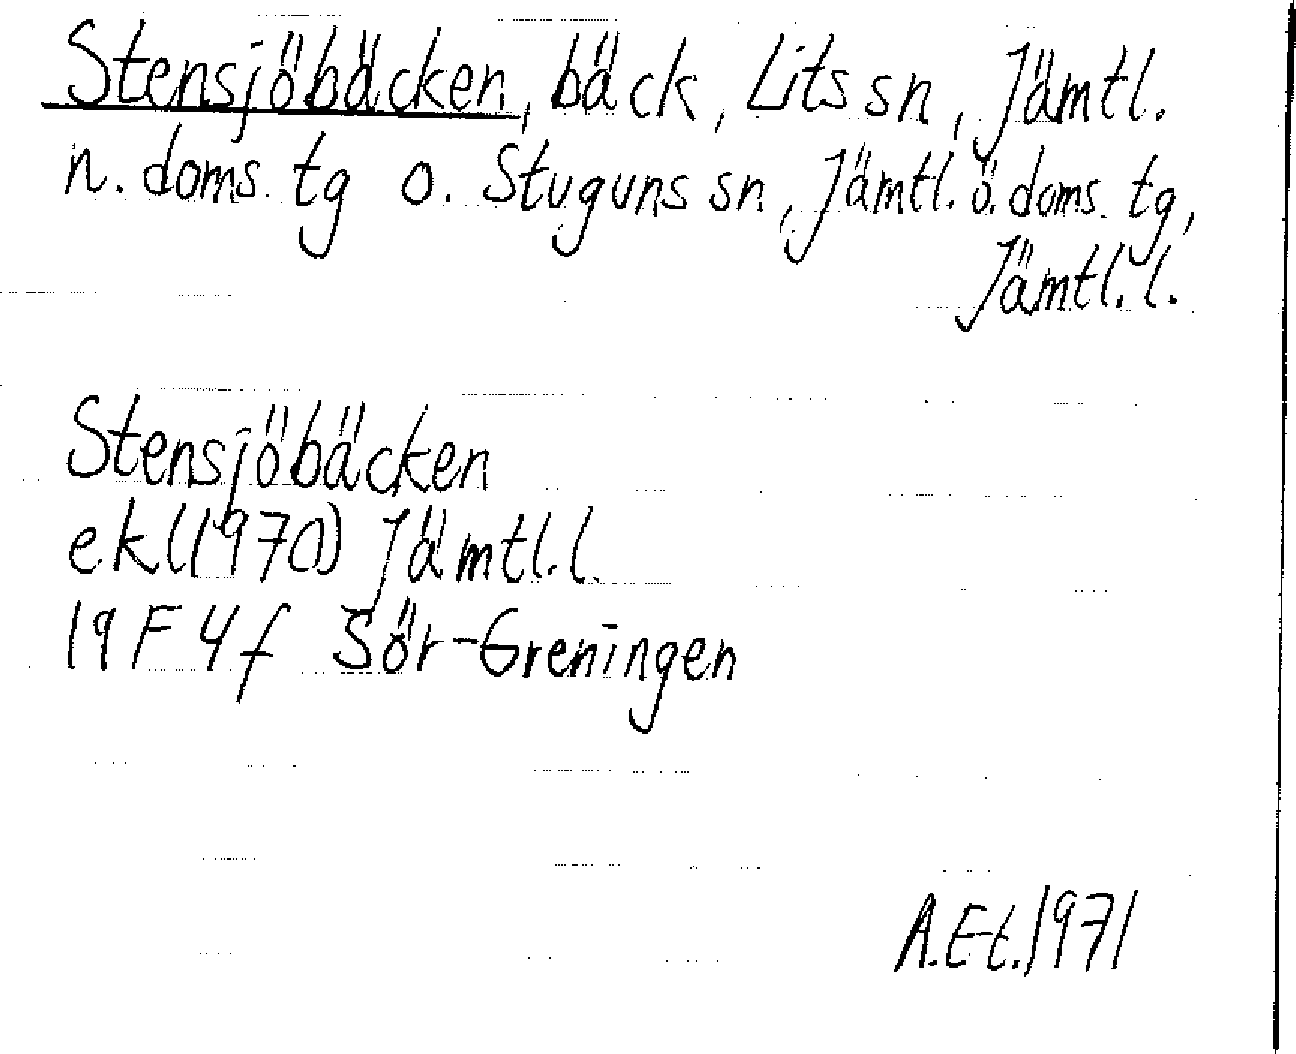 Stensjöbäcken, bäck, Lits sn, Jämtl.
n. doms. tg o. Stuguns sn, Jämtl. ö. doms. tg,
Jämtl. l.
Stensjöbäcken
ek (1970) Jämtl. l.
19 F 4 f Sör-Greningen
A. E-t. 1971